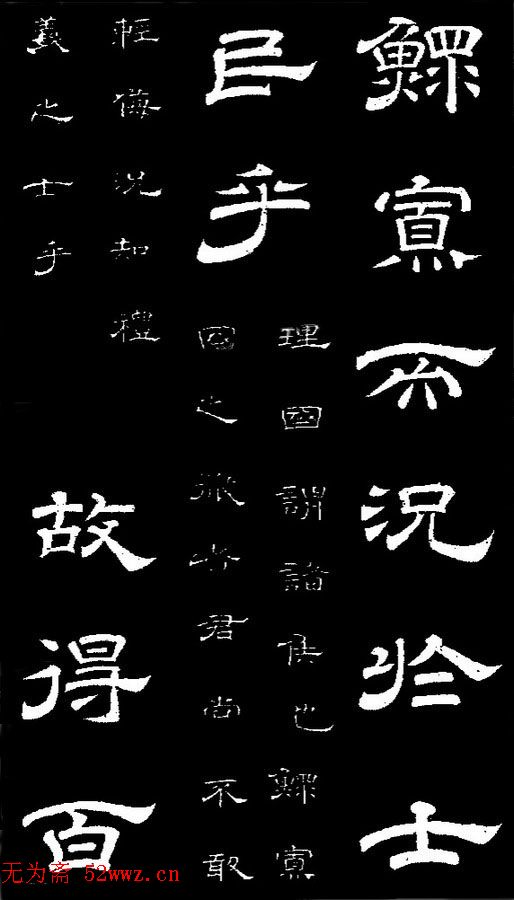 鰥寡而況於士
民乎
理國謂諸侯也鰥寡
國之微者君尚不敢
輕侮況知禮
義之士乎
故得百
无为斋 52wwz.cn